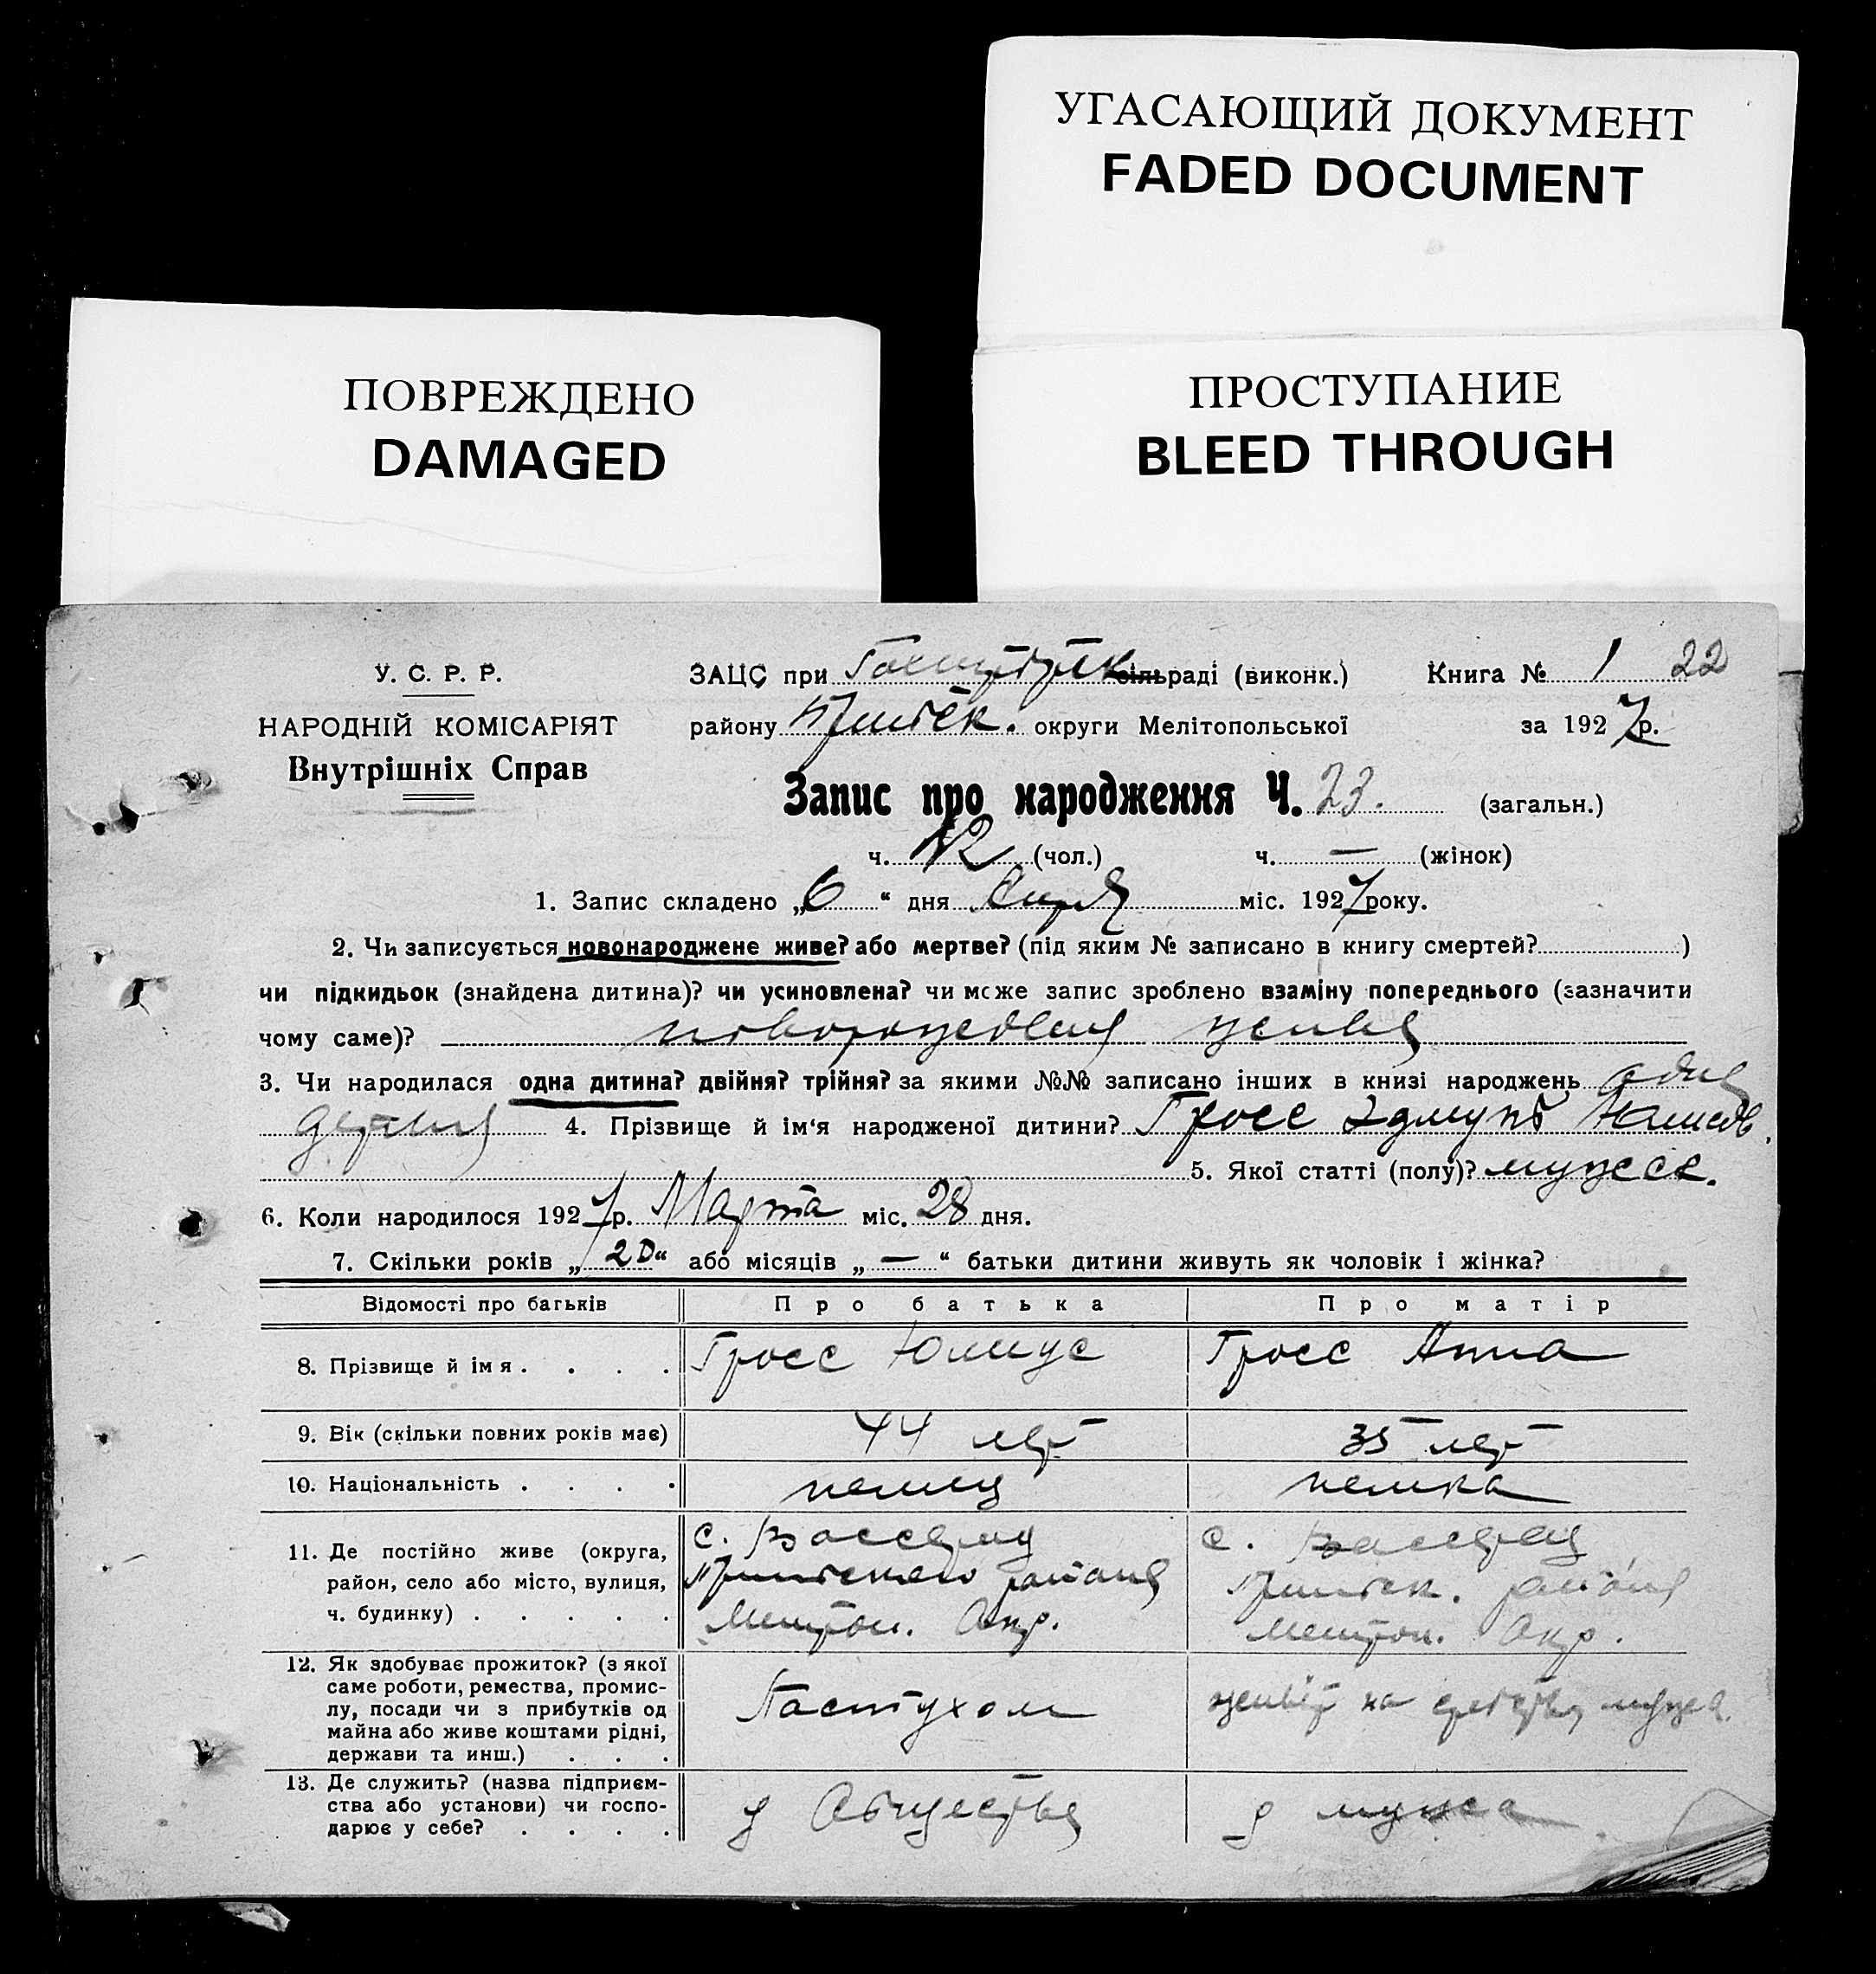 УГАСАЮЩИЙ ДОКУМЕНТ
FADED DOCUMENT
ПОВРЕЖДЕНО
DAMAGED
ПРОСТУПАНИЕ
BLEED THROUGH
У. С. Р. Р.
НАРОДНІЙ КОМІСАРІЯТ
Внутрішніх Справ
ЗАЦС при сільраді (виконк.) Книга № 1 22
району Пришибск. округи Мелітопольської за 1927 р.
Запис про народження Ч. 23. (загальн.)
ч. 12 (чол.) ч. — (жінок)
1. Запис складено „6“ дня міс. 1927 року.
2. Чи записується новонароджене живе? або мертве? (під яким № записано в книгу смертей? )
чи підкидьок (знайдена дитина)? чи усиновлена? чи може запис зроблено взаміну попереднього (зазначити
чому саме)?
3. Чи народилася одна дитина? двійня? трійня? за якими №№ записано інших в книзі народжень
4. Прізвище й ім‘я народженої дитини? Гросс Эдмунд
5. Якої статті (полу)? мужск.
6. Коли народилося 1927 р. Марта міс. 28 дня.
7. Скільки років „20“ або місяців „—“ батьки дитини живуть як чоловік і жінка?
Відомості про батьків Про батька Про матір
8. Прізвище й імя . . . . Гросс Юлиус Гросс Анна
9. Вік (скільки повних років має) 44 лет 35 лет
10. Національність . . . . немец немка
11. Де постійно живе (округа,
район, село або місто, вулиця,
ч. будинку) . . . . .
с. Вассерау
Пришибского района
Мелитоп. Окр.
с. Вассерау
Пришибск. района
Мелитоп. Окр.
12. Як здобуває прожиток? (з якої
саме роботи, ремества, промис-
лу, посади чи з прибутків од
майна або живе коштами рідні,
держави та инш.) . . .
Пастухом
живёт на средства мужа.
13. Де служить? (назва підприєм-
ства або установи) чи госпо-
дарює у себе? . . . .
у Общества
у мужа